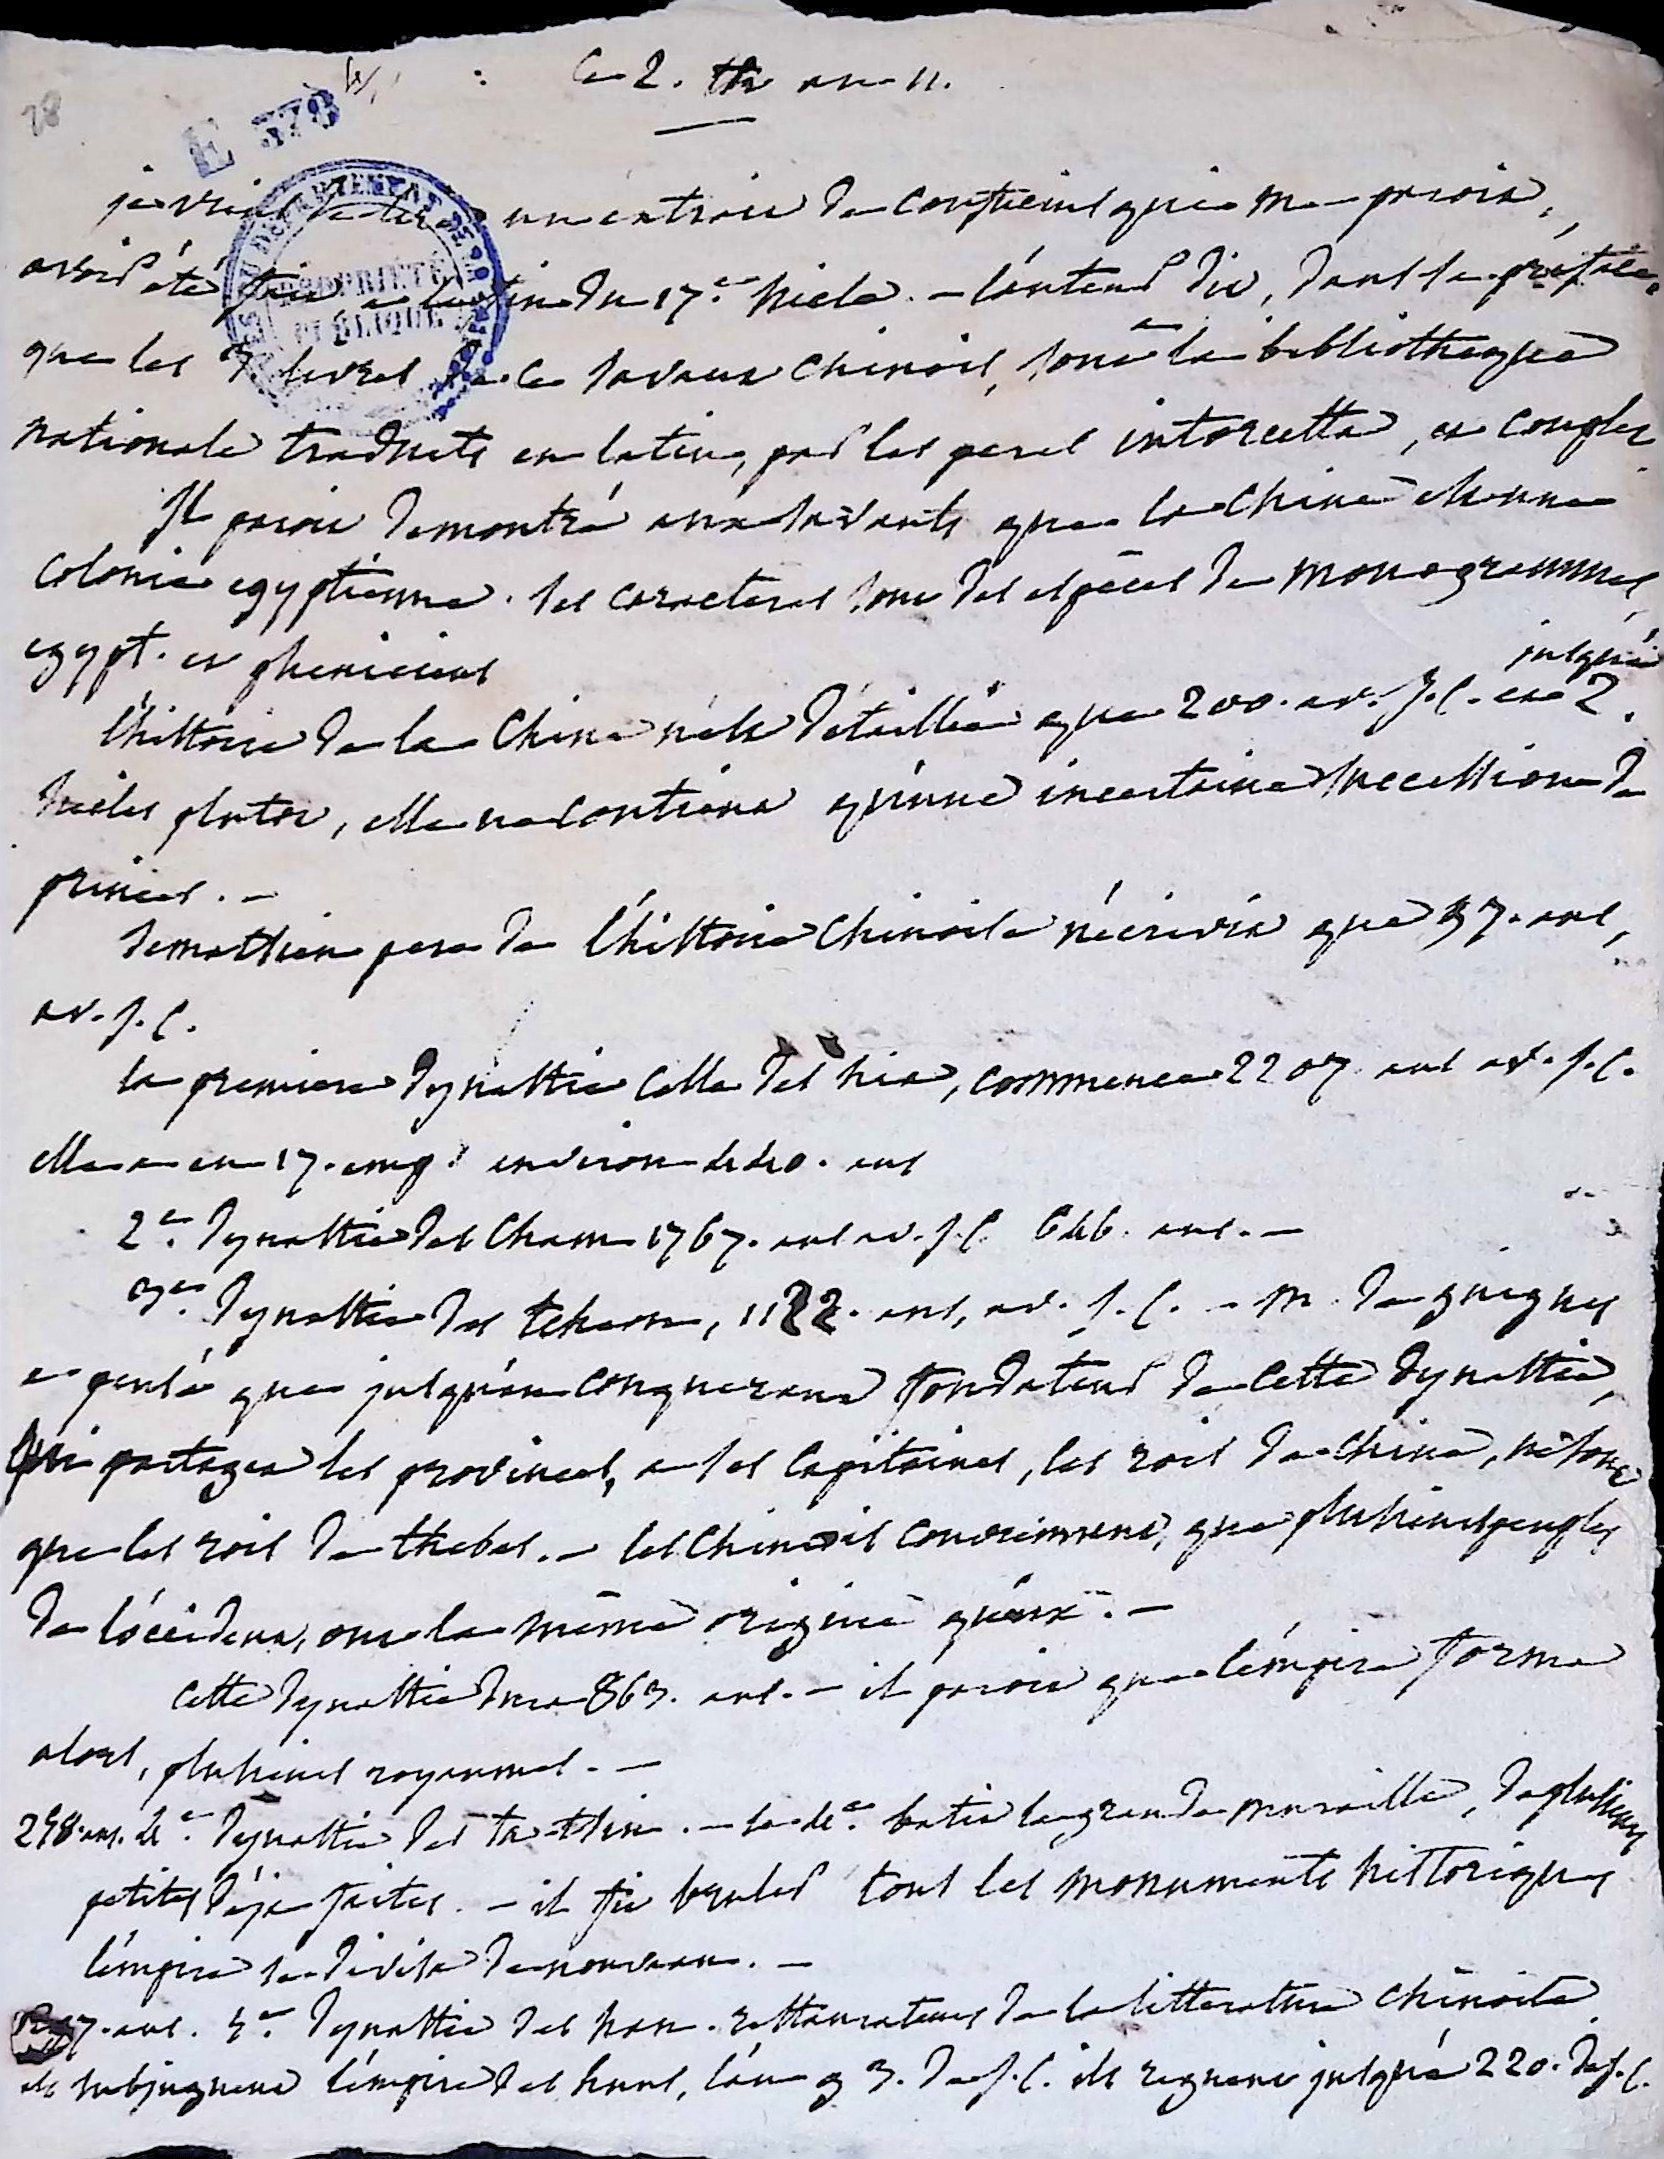 28
E 378
ce 2. th an 11.
je viens de lire un extrait de confucius qui me parois,
avoir été fait a la fin du 17.e siecle. - l'auteur dit, dans sa préface,
que les 3 livres de ce savant chinois, sont a la bibliotheque
nationale traduits en latin, par les peres intorcetta, et couplet
Il parois demontré aux savants que la chine est une
colonie egyptienne. ses caracteres sont des espèces de monogrammes,
egypt. et pheniciens
l'histoire de la Chine n'est détaillée que 200. av. J.C. et jusqu'à 2.
siecles plutot, elle ne contient qu'une incertaine succession de
princes. -
sematsien pere de l'histoire Chinoise n'écrivit que 97. ans,
av. J.C.
la premiere dynastie celle des hia, commence 2207 ans av. J.C.
elle a eu 17. emp.r environ 440. ans
2.e dynastie des Cham 1767. ans av. J.C. 646. ans. -
3.e dynastie des tcheou, 1122. ans, av. J.C. - M. de guignes
a pensé que jusqu'au conquerant fondateur de cette dynastie,
qui partagea les provinces, a ses capitaines, les rois de chine, ne sont
que les rois de thebes. - les Chinois conviennent, que plusieurs peuples
de l'occident, ont la même origine qu'eux. -
cette dynastie dura 863. ans. - il parois que l'empire forma
alors, plusieurs royaumes. -
248. ans. 4.e dynastie des ta-tsin. - le 4.e batit la grande muraille, de plusieurs
petites déja faites. - il fit bruler tous les monuments historiques
l'empire se divisa de nouveau. -
207. ans. 5.e dynastie des han. restaurateurs de la litterature chinoise
ils subjuguent l'empire des huns, l'an 93. de J.C. ils regnent jusqu'à 220. de J.C.
PROPRIÉTÉ
PUBLIQUE